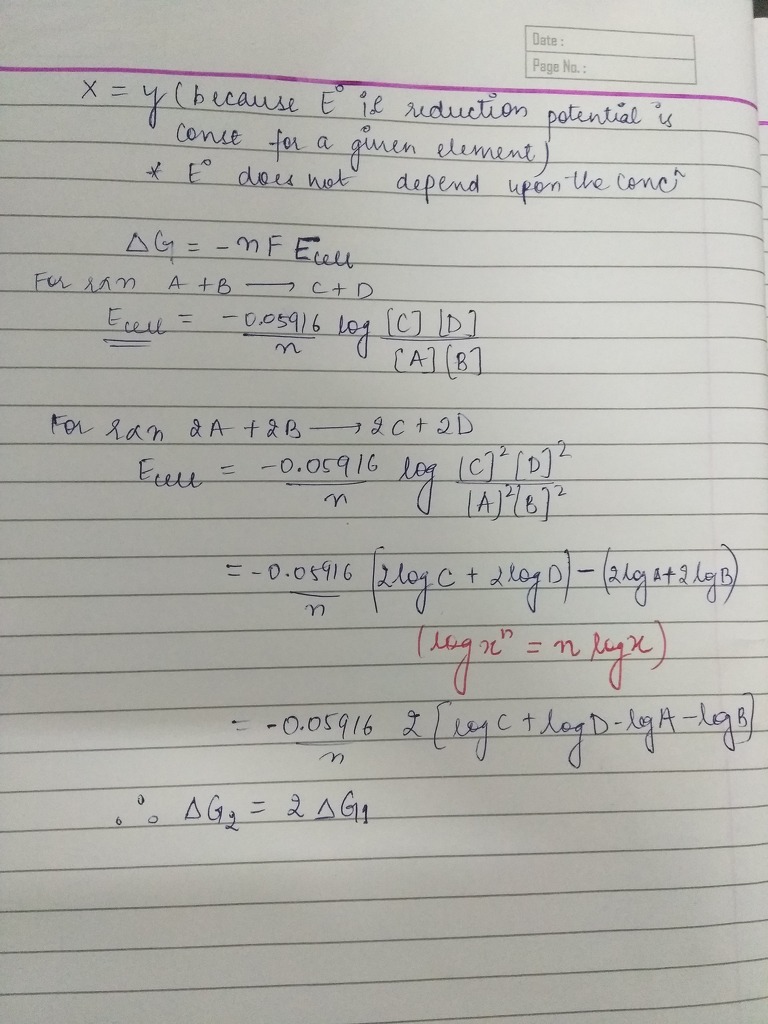 Date :
Page No. :
x = y (because E° ie reduction potential is
const for a given element)
* E° does not depend upon the concⁿ
ΔG = -nF Ecell
For rxn A + B ⟶ C + D
Ecell = -0.05916/n log [C] [D]/[A] [B]
For rxn 2A + 2B ⟶ 2C + 2D
Ecell = -0.05916/n log [C]² [D]²/[A]² [B]²
= -0.05916/n [2logC + 2logD] - (2logA + 2logB)
(log xⁿ = n log x)
= -0.05916/n 2 [logC + logD - logA - logB]
∴ ΔG₂ = 2 ΔG₁